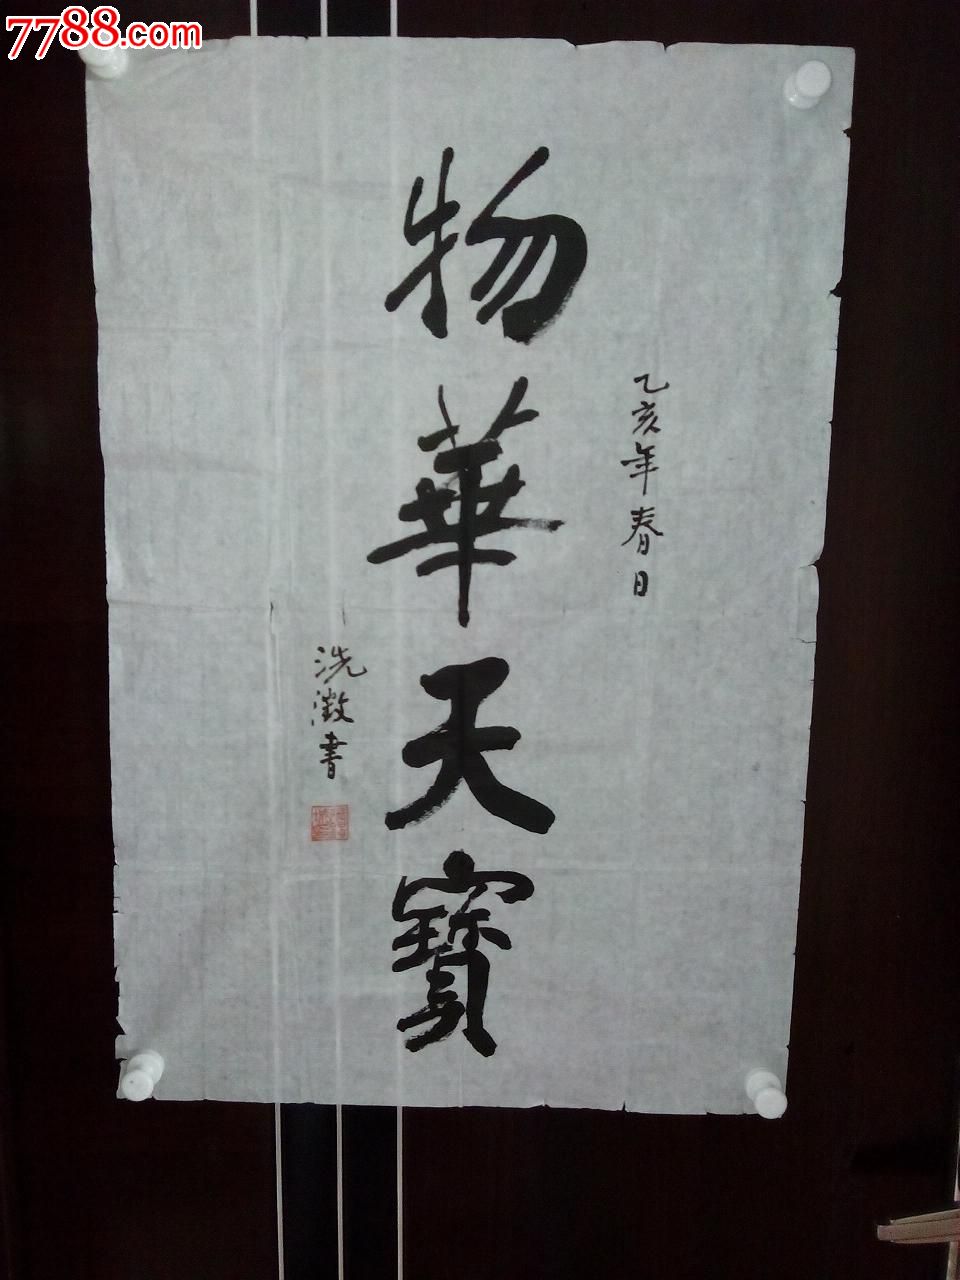 7788.com
乙亥年春日
物華天寶
洗澂書